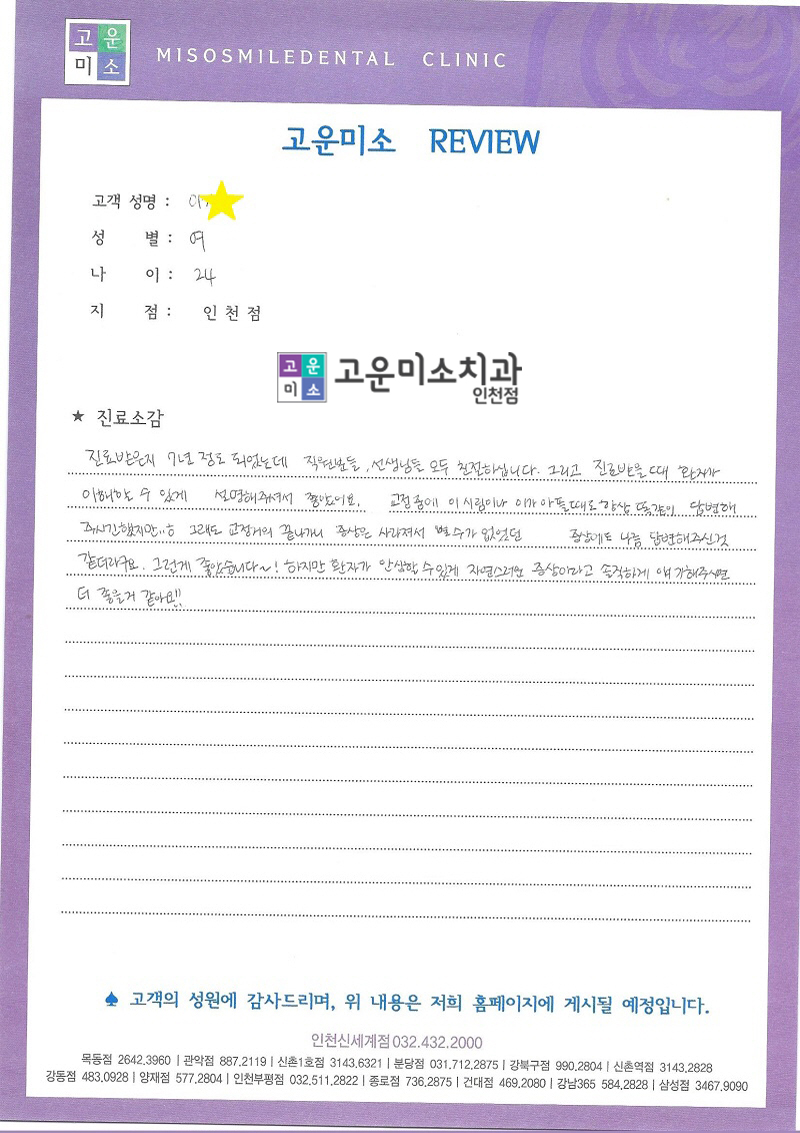 고운
미소
MISOSMILEDENTAL CLINIC
고운미소 REVIEW
고객 성명 : 이
성 별 : 여
나 이 : 24
지 점 : 인천점
고운
미소
고운미소치과
인천점
★ 진료소감
진료받은지 7년 정도 되었는데 직원분들, 선생님들 모두 친절하십니다. 그리고 진료받을때 환자가
이해할 수 있게 설명해주셔서 좋았어요. 교정중에 이 시림이나 이가 아플때로 항상 똑같이 답변해
주시긴했지만.. 그래도 교정거의 끝나가니 증상은 사라져서 수가 없었던 증상에도 나름 답변해주신것
같더라구요. 그런게 좋았습니다~! 하지만 환자가 안심할 수 있게 자연스러운 증상이라고 솔직하게 얘기해주시면
더 좋을거 같아요!!
♠ 고객의 성원에 감사드리며, 위 내용은 저희 홈페이지에 게시될 예정입니다.
인천신세계점 032.432.2000
목동점 2642.3960 | 관악점 887.2119 | 신촌1호점 3143.6321 | 분당점 031.712.2875 | 강북구점 990.2804 | 신촌역점 3143.2828
강동점 483.0928 | 양재점 577.2804 | 인천부평점 032.511.2822 | 종로점 736.2875 | 건대점 469.2080 | 강남365 584.2828 | 삼성점 3467.9090